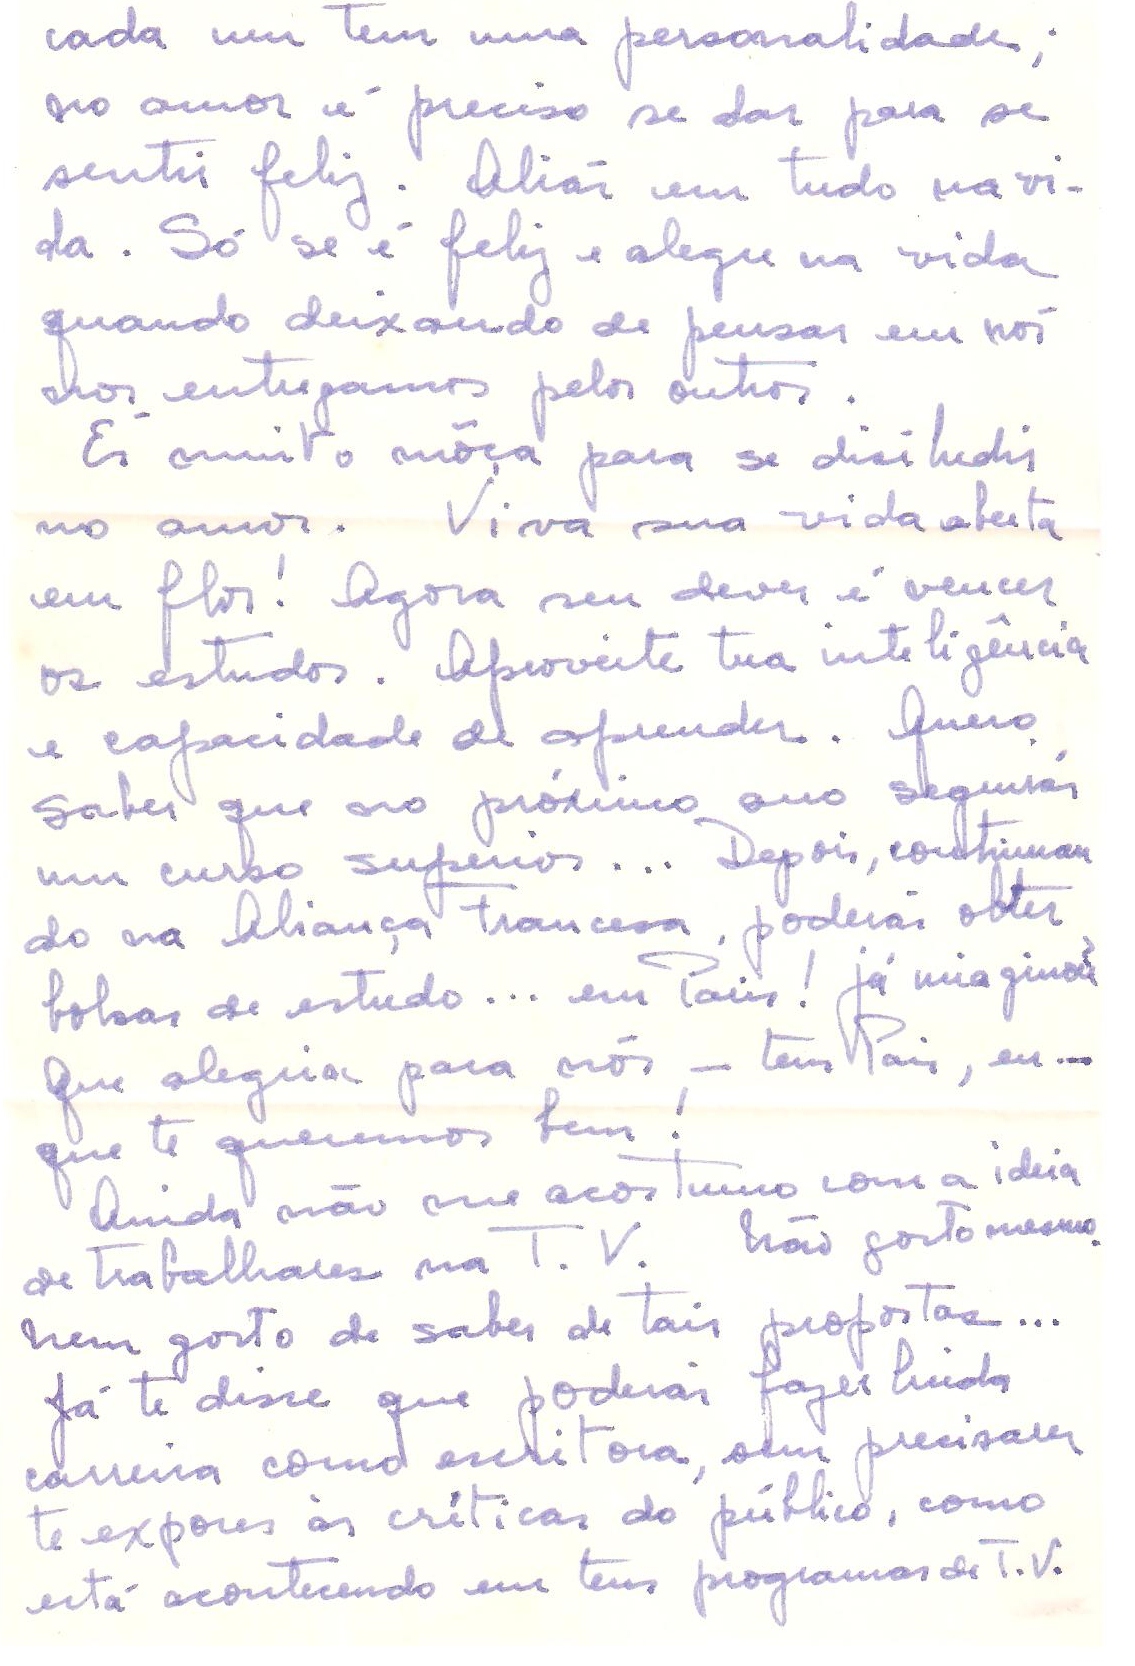 cada um tem uma personalidade;
no amor é preciso se dar para se
sentir feliz. Aliás em tudo na vi-
da. Só se é feliz e alegre na vida
quando deixando de pensar em nós
nos entregamos pelos outros.
És muito môça para se disíludir
no amor. Viva sua vida aberta
em flor! Agora seu dever é vencer
os estudos. Aproveite tua inteligência
e capacidade de aprender. Quero
saber que no próximo ano seguirás
um curso superior... Depois, continuan
do na Aliança Francesa, poderás obter
bolsas de estudo... em Paris! já imaginou?
Que alegria para nós – teus Pais, eu –
que te queremos bem!
Ainda não me acostumo com a ideia
de trabalhares na T.V. Não gosto mesmo.
Nem gosto de saber de tais propostas...
Já te disse que poderás fazer linda
carreira como escritora, sem precisares
te expores às críticas do público, como
está acontecendo em teus programas de T.V.